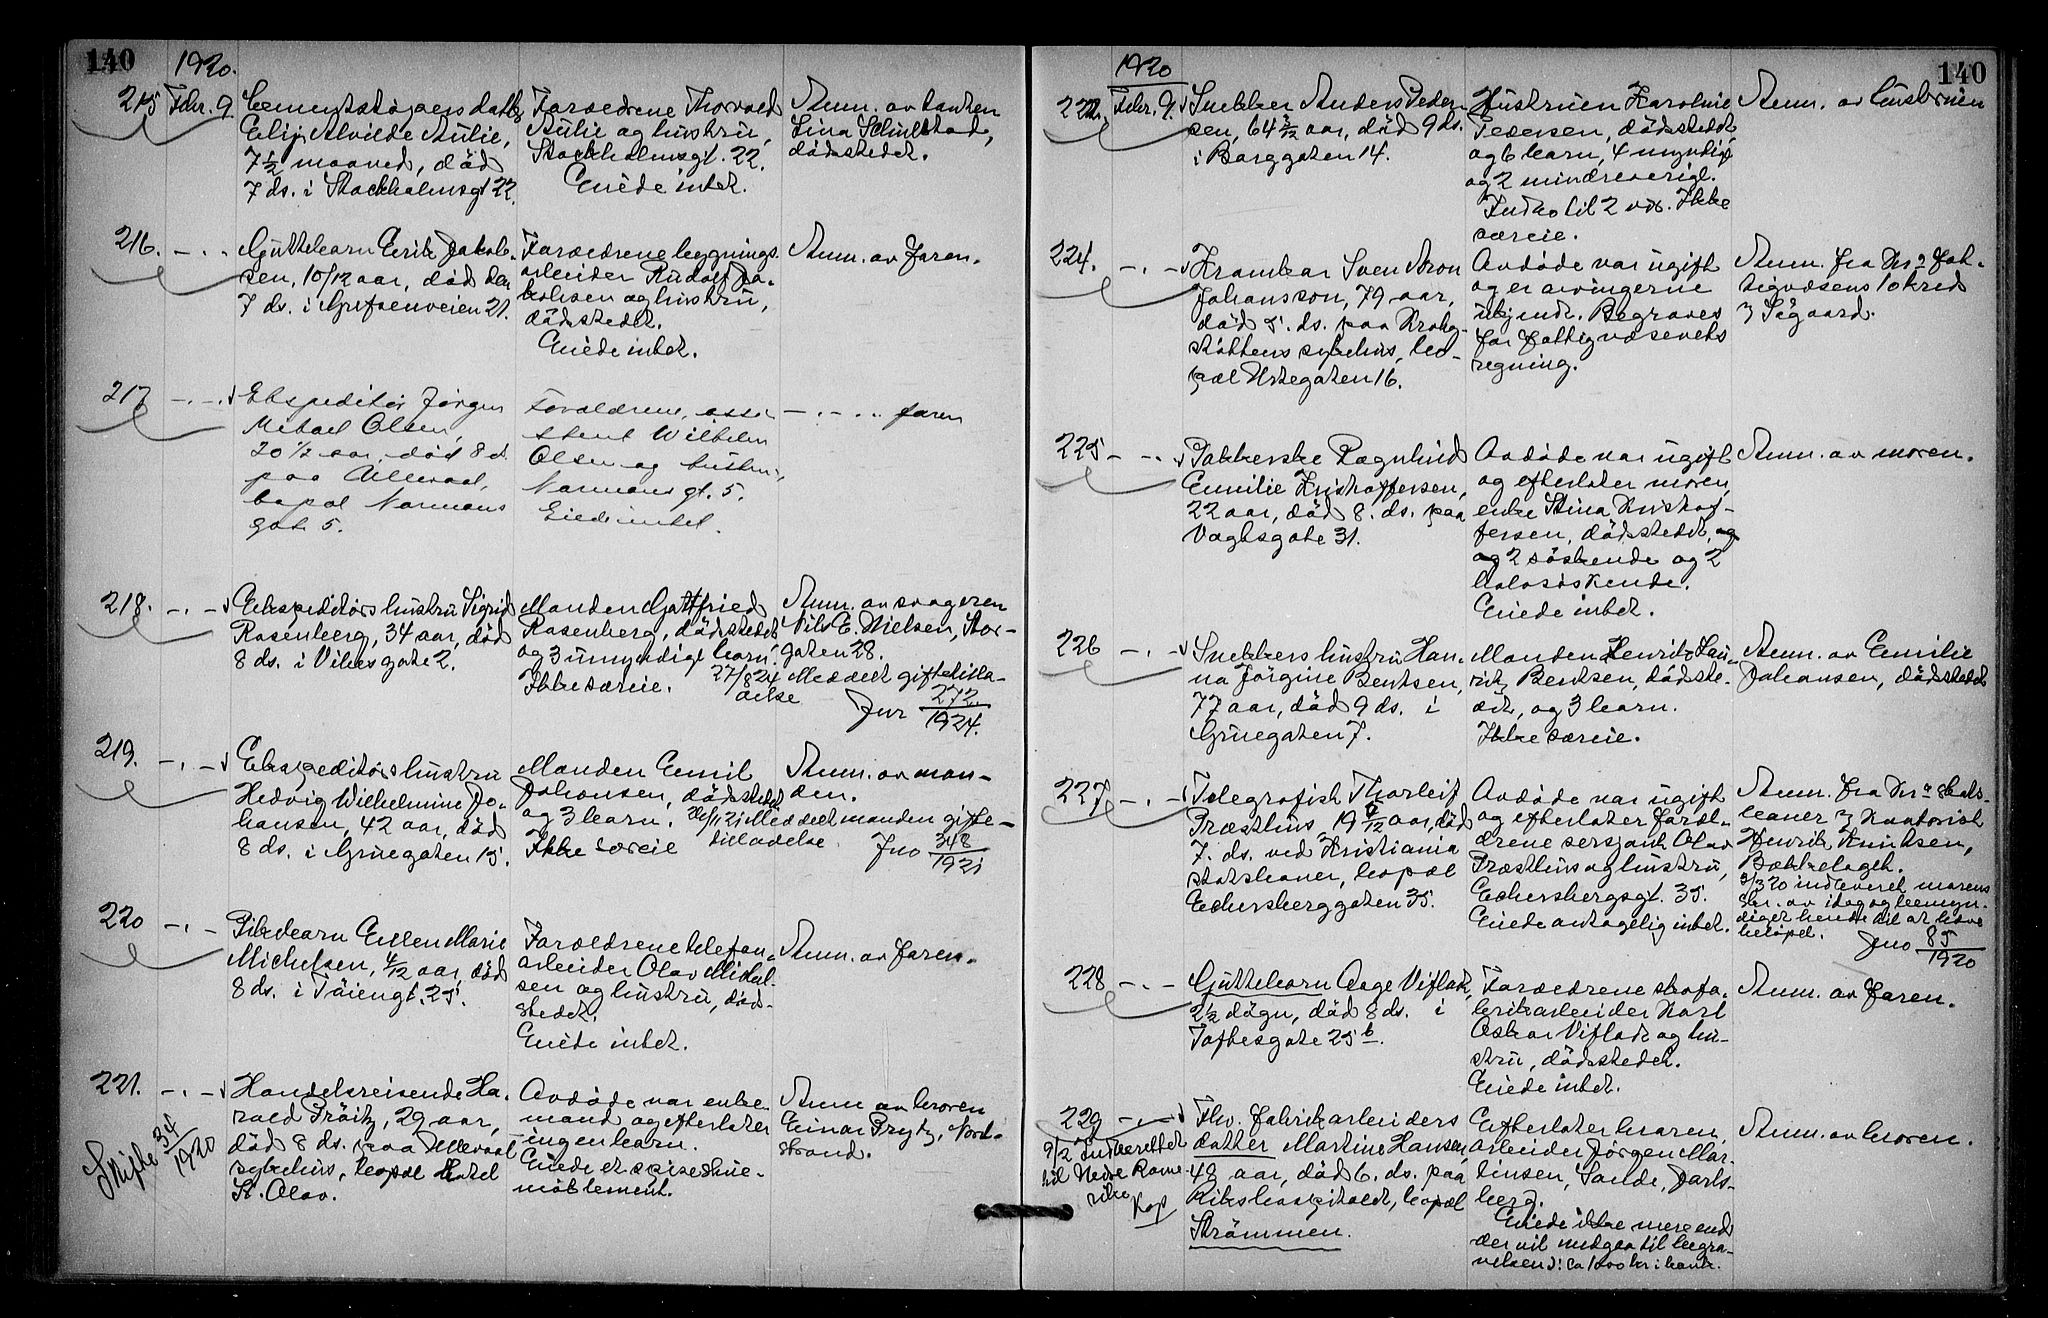 140
1920.
215 Febr. 9.
Cementstøpers datter
Elif Alvilde Aulie,
7 1/2 maaned, död
7 ds. i Stockholmsgt 22.
Foræedrene Thorvald
Aulie og hustru,
Stockholmsgt. 22.
Eiede intet.
Anm. av tanten
Lina Schulstad,
dödsstedet.
216. -.-
Guttebarn Erik Jakob-
sen, 10/12 aar, död den
7 ds. i Grefsenveien 21.
Foræedrene bygnings-
arbeider Rudolf Ja-
kobsen og hustru,
dödsstedet.
Eiede intet.
Anm. av faren.
217 -.-
Ekspeditör Jörgen
Mikael Olsen,
20 1/2 aar, död 8 d.
paa Ullevaal,
bopæl Normans
gate 5.
Forældrene, assi-
stent Wilhelm
Olsen og hustru,
Normans gt. 5.
Eiede intet.
-.-.. faren
218. -.-
Ekspeditörs hustru Sigrid
Rosenberg, 34 aar, död
8 ds. i Vibesgate 2.
Manden Gottfried
Rosenberg, dödsstedet
og 3 umyndige barn.
Ikke særeie.
Anm. av svogeren
Nils E. Nielsen, Stor-
gaten 28.
27/8 24 Meddelt giftetilla-
delse
Jnr 272/1924.
219. -.-
Ekspeditörs hustru
Hedvig Wilhelmine Jo-
hansen, 42 aar, död
8 ds. i Gruegaten 15.
Manden Emil
Johansen, dödsstedet
og 3 barn.
Ikke særeie
Anm. av man-
den.
Meddelt manden gifte-
tilladelse. Jno 348/1921
220 -.-
Pikebarn Ellen Marie
Michelsen, 4/12 aar, död
8 ds. i Töiengt. 25.
Foræedrene telefon-
arbeider Olav Michel-
sen og hustru, död-
stedet.
Eiede intet.
Anm. av faren.
221. -.-
Skifte 34/1920
Handelsreisende Ha-
rald Pröitz, 29 aar,
död 8 ds. paa Ullevaal
sykehus, bopæl Hotel
St. Olav.
Avdöde var enke-
mand og efterlater
ingen barn.
Eiede et spisestue-
möblement.
Anm av broren
Einar Prytz, Nord-
strand.
140
1920
222. Febr. 9.
Snekker Anders Peder-
sen, 64 3/12 aar, död 9 ds.
i Borggaten 14.
Hustruen Karoline
Pedersen, dödsstedet
og 6 barn, 4 myndige
og 2 mindreaarige.
Indko til 2 vdr. Ikke
særeie.
Anm. av hustruen
224. -.-
Kramkar Sven Aron
Johansson, 79 aar,
död 5. ds. paa Krohg-
stöttens sykehus, bo-
pæl Urtegaten 16.
Avdöde var ugift
og er arvingerne
ukjendt. Begraves
for fattigvæsenets
regning.
Anm. fra Kra Fat-
tigvæsens 10 kred
v/ Sögaard.
225 -.-
Pakkerske Ragnhild
Emilie Kristoffersen,
22 aar, död 8. ds. paa
Vogtsgate 31.
Avdöde var ugift
og efterlater moren,
enke Stina Kristof-
fersen, dödsstedet, og
og 2 söskende og 2
halvsöskende.
Eiede intet.
Anm. av moren.
226 -.-
Snekkers hustru Han-
na Jörgine Bentsen,
77 aar, död 9 ds. i
Gruegaten 7.
Manden Henrik Lau-
ritz Bentsen, dödsste-
det, og 3 barn.
Ikke særeie.
Anm. av Emilie
Johansen, dödsstedet
227 -.-
Telegrafist Thorleif
Præsthus, 19 6/12 aar, död
7. ds. ved Kristiania
statsbaner, bopæl
Eckersberggaten 35.
Avdöde var ugift
og efterlater foræl-
drene sersjant Olav
Præsthus og hustru,
Eckersbergsgt. 35.
Eiede antagelig intet.
Anm. fra Kra stats-
baner v/ Kontorist
Henrik Knutsen,
Bækkelaget.
9/3 20 indleveret morens
skr. av idag og bemyn-
diget hende til at hæve
belöpet. Jno 85/1920
228 -.-
Guttebarn Aage Vifladt,
2 1/2 dögn, död 8 ds. i
Toftesgate 25 b.
Foræedrene skofa-
brikarbeider Karl
Oskar Vifladt og hu-
stru, dödsstedet.
Eiede intet.
Anm. av faren.
229 -.-
9/2 Indberettet
til Nedre Rome-
rike
Kop
Fhv. fabrikarbeiders
datter Martine Hansen,
48 aar, död 6. ds. paa
Rikshospitalet, bopæl
Strömmen.
Efterlater broren,
arbeider Jörgen Mar-
tinsen, Sande, Jarls-
berg.
Eiede ikke mere end
der vil medgaa til begra-
velsen: ca 1200 kr i bank.
Anm. av broren.